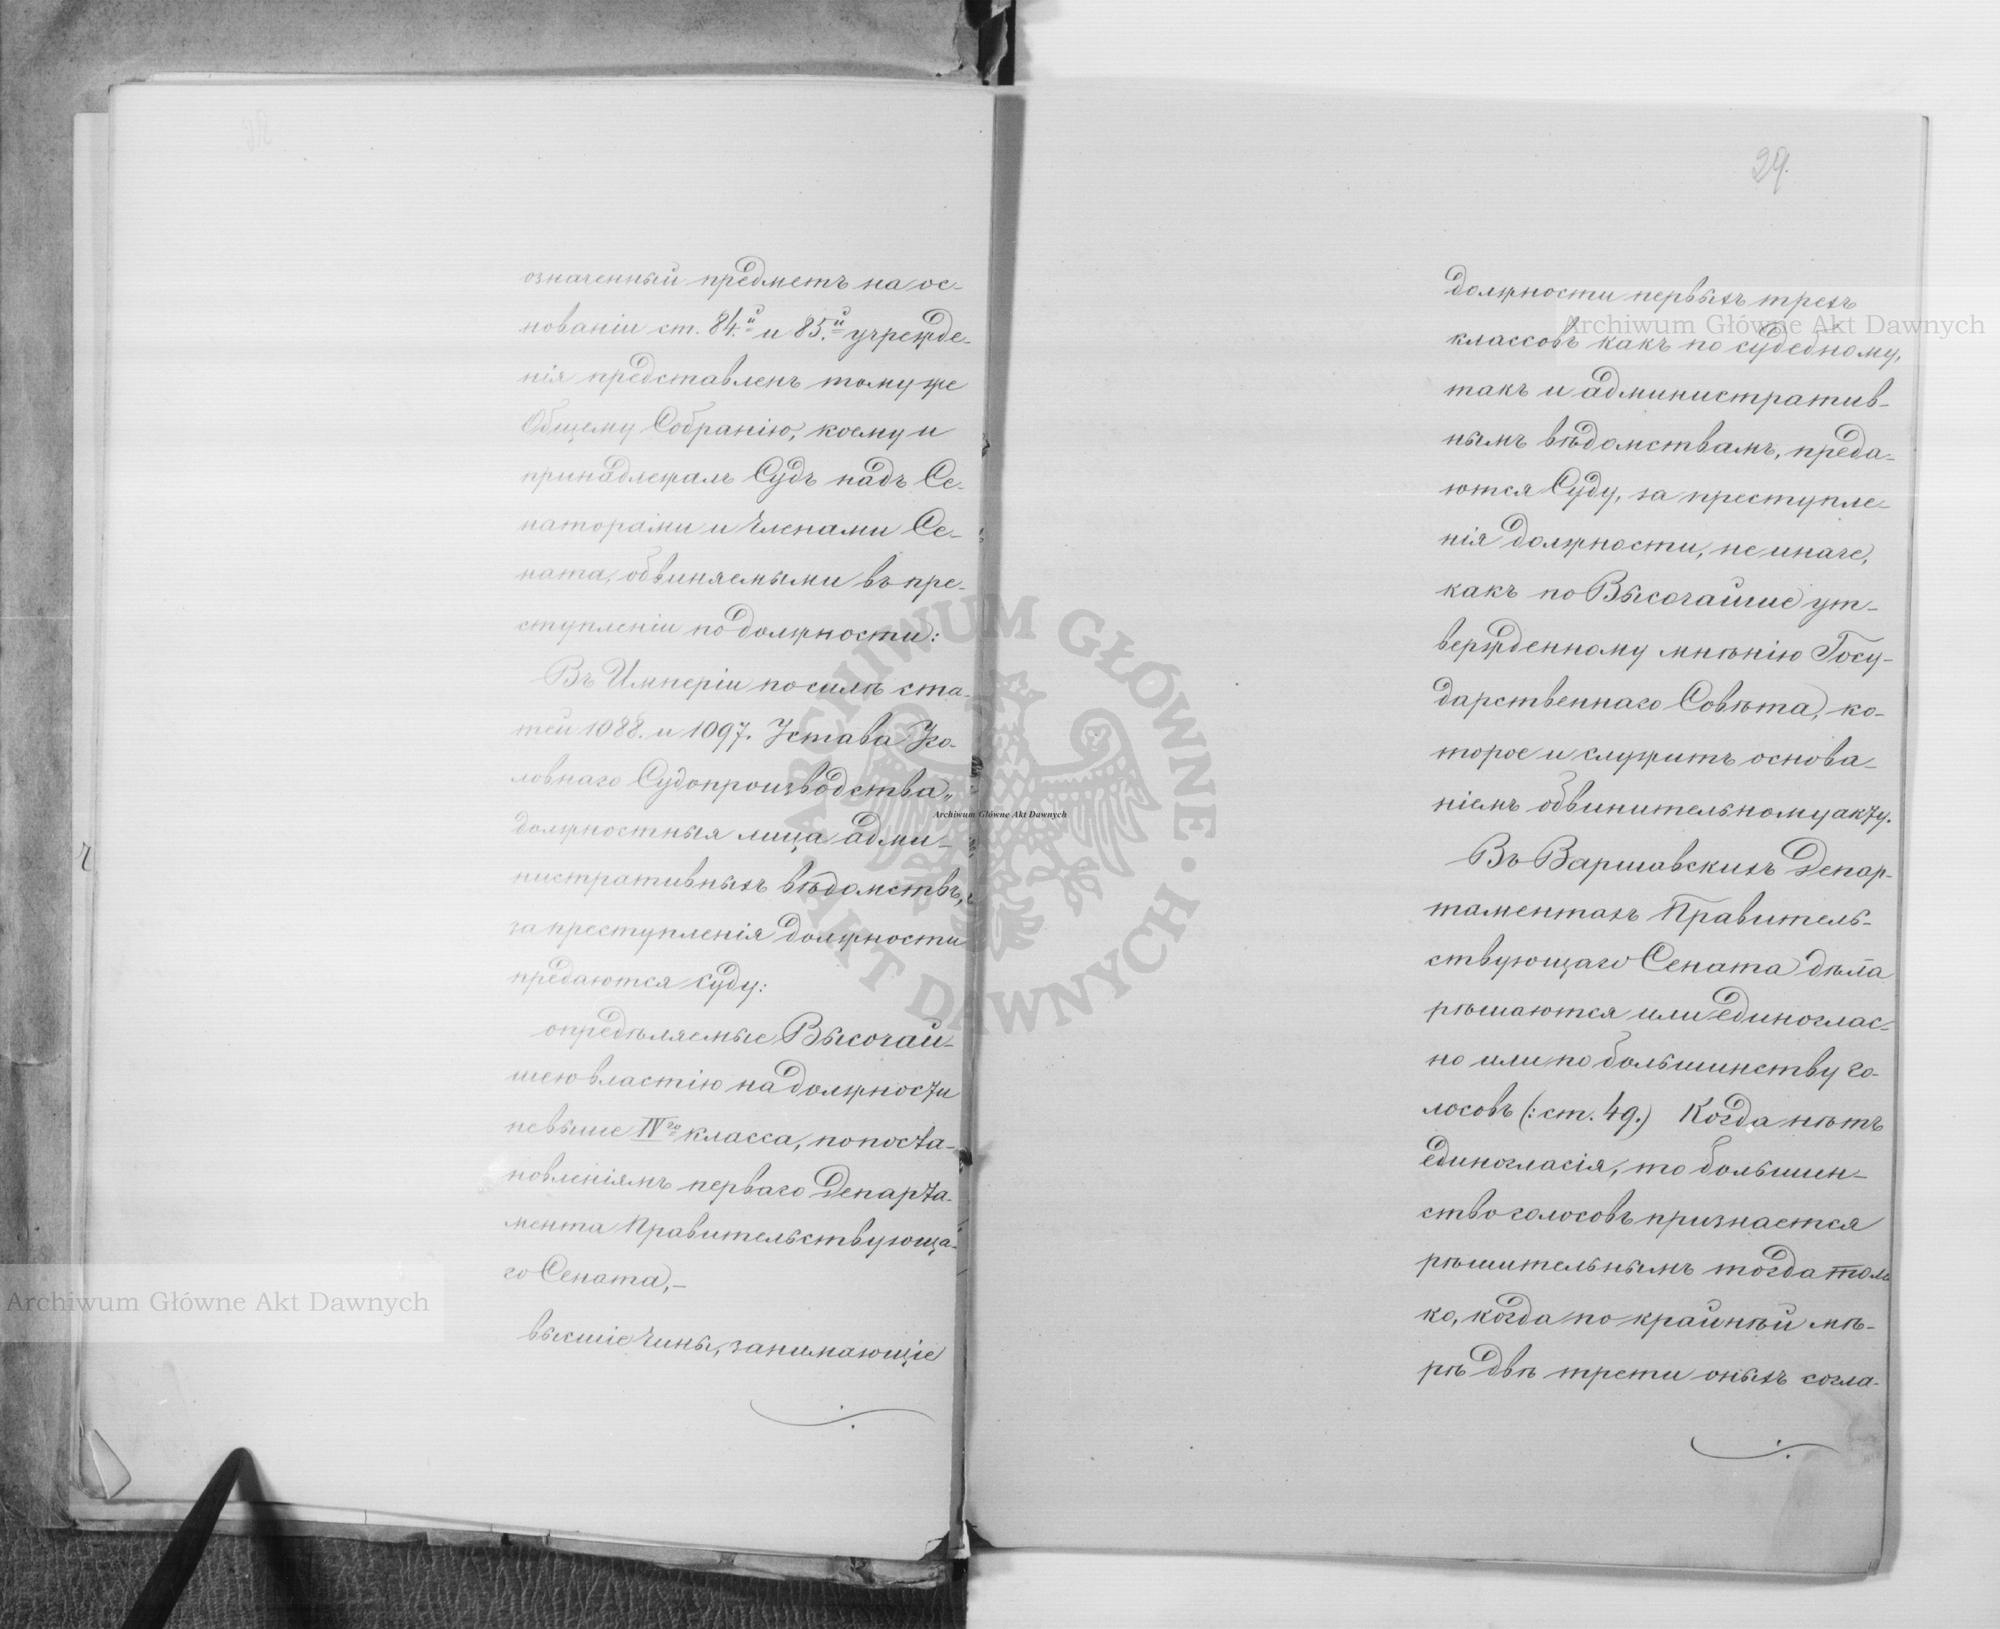 означенный предметъ на ос-
нованіи ст. 84.й и 85.й учрежде-
нія представленъ тому же
Общему Собранію, коему и
принадлежалъ Судъ надъ Се-
наторами и Членами Се-
ната, обвиняемыми въ пре-
ступленіи по должности:
Въ Имперіи по силѣ ста-
тей 1088. и 1097. Устава Уго-
ловнаго Судопроизводства„
должностныя лица адми-
нистративныхъ вѣдомствъ,
за преступленія должности
предаются суду:
опредѣляемые Высочай-
шею властію на должности
не выше IVго класса, по поста-
новленіямъ перваго Департа-
мента Правительствующа-
го Сената,-
высшіе Чины, занимающіе
29.
должности первыхъ трехъ
классовъ какъ по судебному,
такъ и административ-
нымъ вѣдомствамъ, преда-
ются Суду, за преступле-
нія должности, не иначе,
какъ по Высочайше ут-
вержденному мнѣнію Госу-
дарственнаго Совѣта, ко-
торое и служитъ основа-
ніемъ обвинительному акту.
Въ Варшавскихъ Депар-
таментахъ Правитель-
ствующаго Сената дѣла
рѣшаются или единоглас-
но или по большинству го-
лосовъ (: ст. 49.) Когда нѣтъ
единогласія, то большин-
ство голосовъ признается
рѣшительнымъ тогда толь
ко, когда по крайнѣй мѣ-
рѣ двѣ трети оныхъ согла-
Archiwum Główne Akt Dawnych
Archiwum Główne Akt Dawnych
Archiwum Główne Akt Dawnych
ARCHIWUM GŁÓWNE · AKT DAWNYCH ·